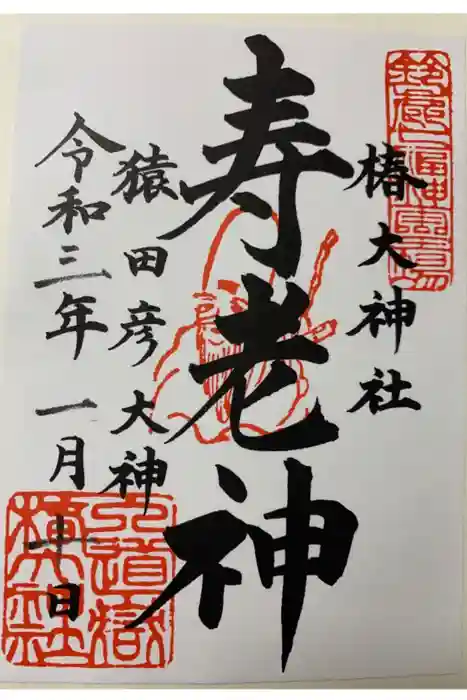 椿大神社
寿老神
猿田彦大神
令和三年一月十日